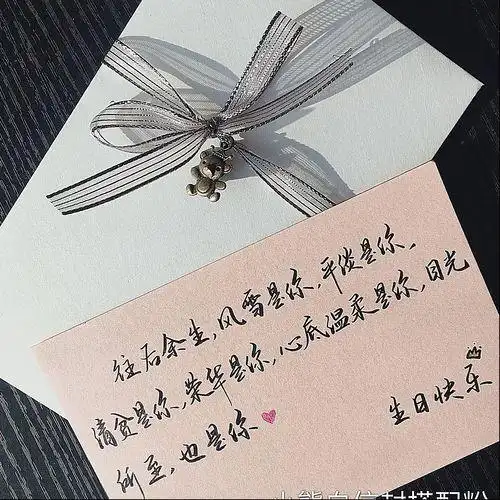 往后余生,风雪是你,平淡是你,
清贫是你,荣华是你,心底温柔是你,目光
所至,也是你
生日快乐
小熊白信封搭配粉